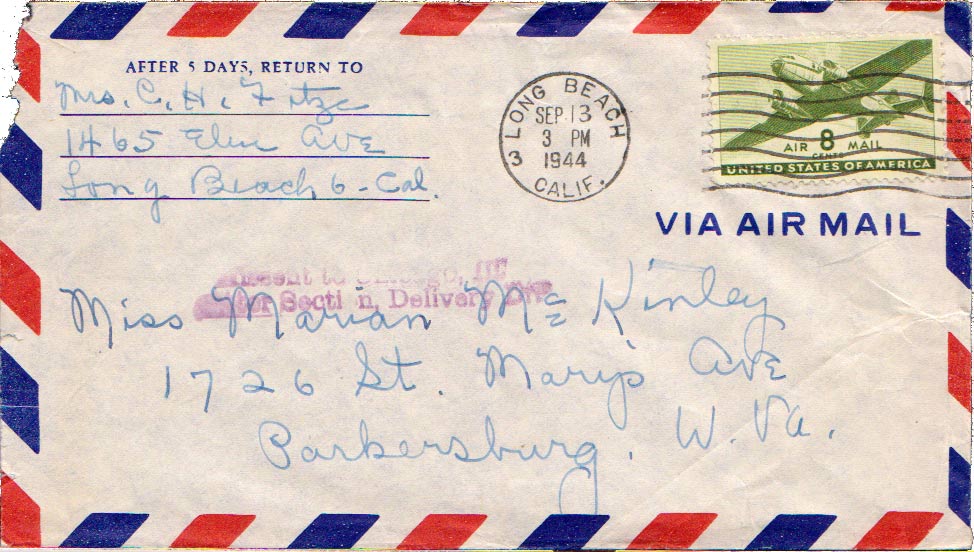 AFTER 5 DAYS, RETURN TO
Mrs. C. H. Fitze
1465 Elm AVE
Long Beach 6 - Cal.
LONG BEACH
SEP 13
3 PM
1944
3
CALIF.
AIR 8 MAIL
CENTS
UNITED STATES OF AMERICA
VIA AIR MAIL
to Chicago, Ill
for Section, Delivery
Miss Marian McKinley
1726 St. Mary's AVE
Parkersburg, W. Va.